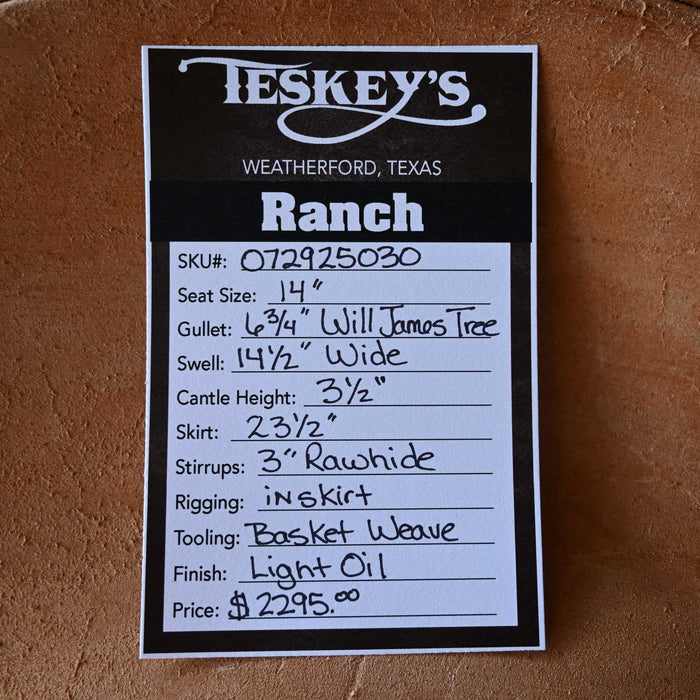 TESKEY'S
WEATHERFORD, TEXAS
Ranch
SKU#: 072925030
Seat Size: 14"
Gullet: 6 3/4" Will James Tree
Swell: 14 1/2" Wide
Cantle Height: 3 1/2"
Skirt: 23 1/2"
Stirrups: 3" Rawhide
Rigging: inskirt
Tooling: Basket Weave
Finish: Light Oil
Price: $2295.00